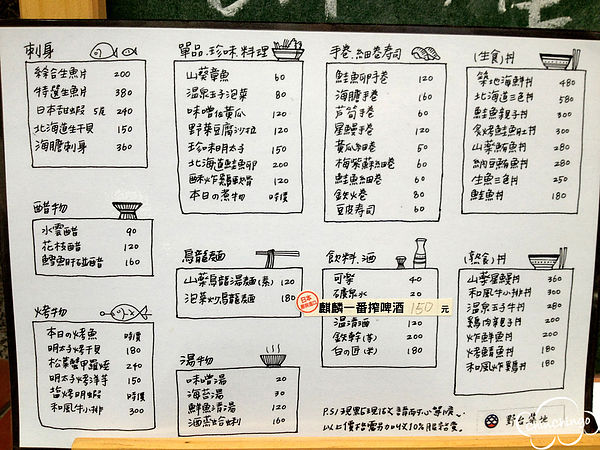 刺身
綜合生魚片 200
特選生魚片 380
日本甜蝦 5尾 240
北海道生干貝 150
海膽刺身 360
醋物
水雲醋 90
花枝醋 120
鱈魚肝碰醋 160
烤物
本日の烤魚 時價
明太子烤干貝 180
松葉蟹甲羅燒 240
明太子烤洋芋 150
鹽烤明蝦 時價
和風牛小排 300
單品.珍味.料理
山葵章魚 60
溫泉玉子泡菜 80
味噌佐黃瓜 120
野菜豆腐沙拉 120
珍味明太子 150
北海道鮭魚卵 200
酥炸雞軟骨 120
本日の煮物 時價
烏龍麵
山藥烏龍湯麵(素) 120
泡菜炒烏龍麵 180
湯物
味噌湯 20
海苔湯 30
鮮魚清湯 120
酒蒸蛤蜊 160
手卷.細卷壽司
鮭魚卵手卷 120
海膽手卷 160
蘆筍手卷 60
星鰻手卷 120
黃瓜細卷 50
梅紫蘇細卷 60
鮭魚細卷 60
鐵火卷 80
豆皮壽司 60
飲料.酒
可樂 40
礦泉水 20
日本
麒麟一番搾啤酒 150 元
溫清酒 120
鐵幹(杯) 200
白の匠(杯) 180
(生食)丼
築地海鮮丼 480
北海道三色丼 580
鮭魚親子丼 300
炙烤鮭魚肚丼 300
山藥鮪魚丼 280
納豆鮪魚丼 280
生魚三色丼 250
鮭魚丼 180
(熟食)丼
山藥星鰻丼 360
和風牛小排丼 300
溫泉玉子牛丼 280
雞肉親子丼 200
炸鮮魚丼 180
烤鯖魚丼 180
和風炸雞丼 180
P.S/現點現做請耐心等候
以上價格需加收10%服務費
野台築地
chingo